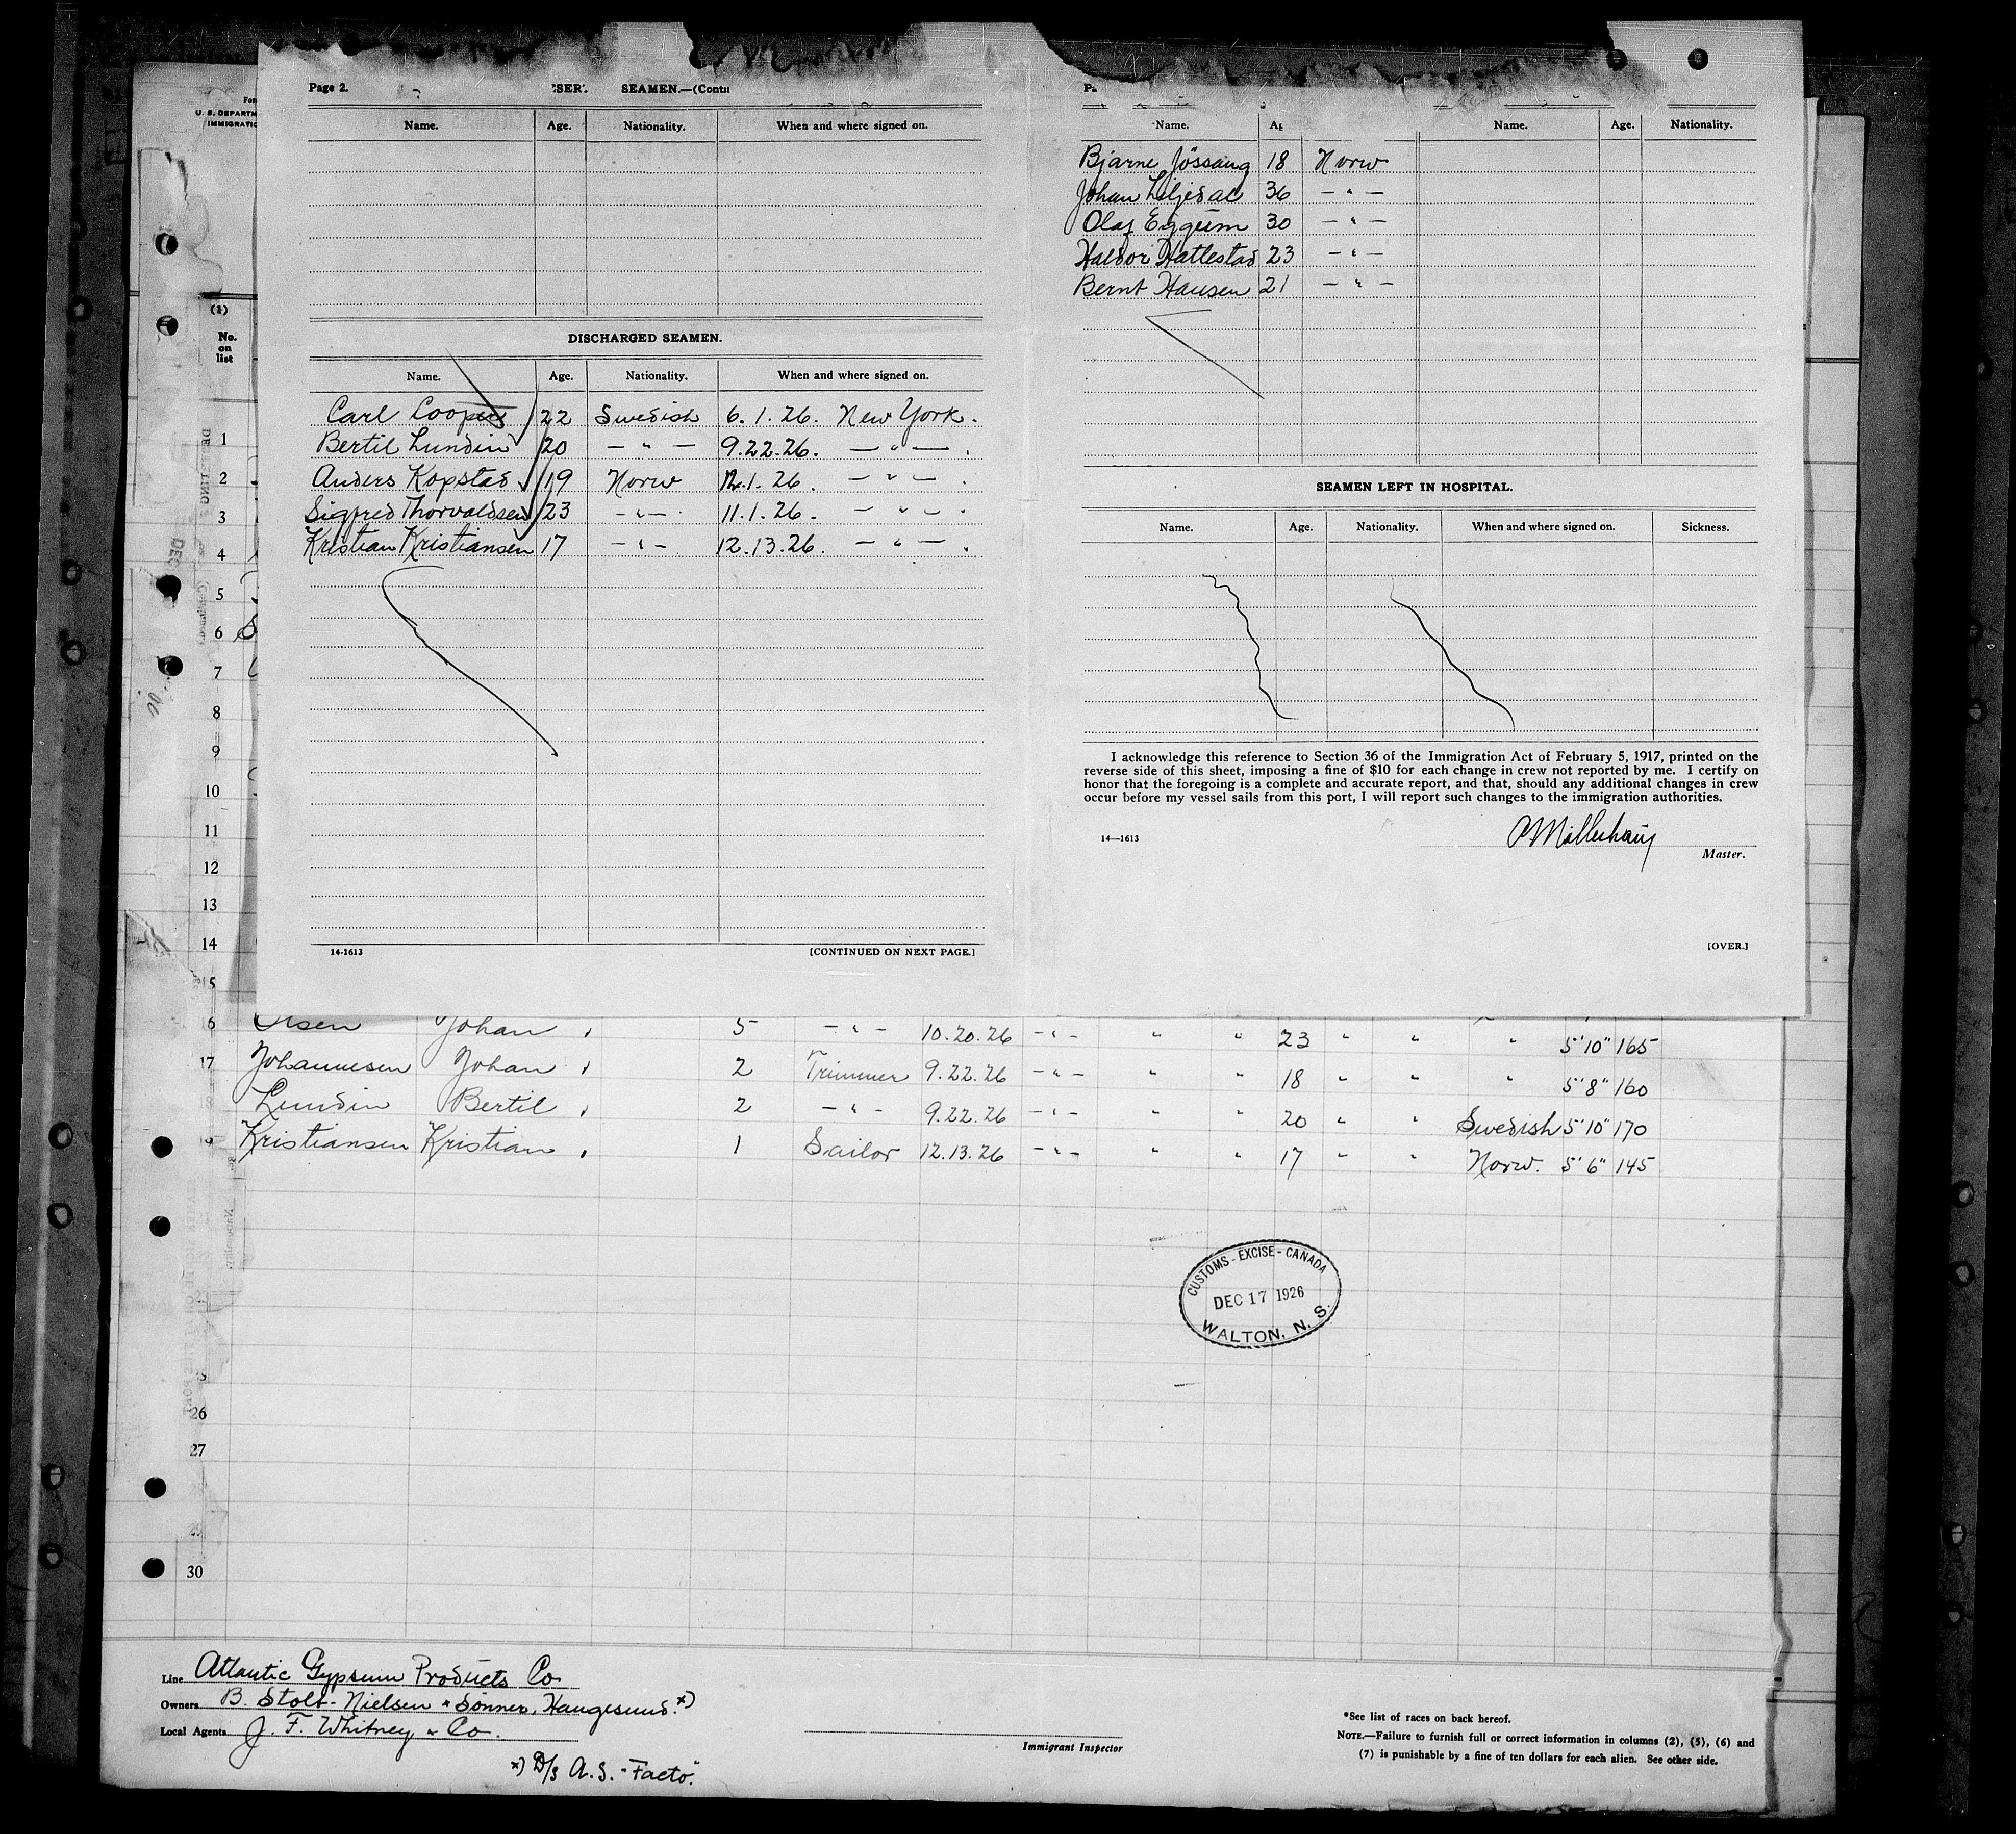 Page 2.
SEAMEN.—(Contu
Name. Age. Nationality. When and where signed on.
DISCHARGED SEAMEN.
Name. Age. Nationality. When and where signed on.
Carl Cooper 22 Swedish 6.1.26. New York.
Bertil Lundin 20 — " — 9.22.26. — " — .
Anders Kopstad 19 Norw 12.1.26. — " — .
Sigfred Thorvaldsen 23 — " — 11.1.26. — " — .
Kristian Kristiansen 17 — " — 12.13.26. — " — .
14-1613 [CONTINUED ON NEXT PAGE.]
Name. Name. Age. Nationality.
Bjarne Jössang 18 Norw
Johan Liljedal 36 — " —
Olaf Eggum 30 — " —
Haldor Hatlestad 23 — " —
Bernt Hansen 21 — " —
SEAMEN LEFT IN HOSPITAL.
Name. Age. Nationality. When and where signed on. Sickness.
I acknowledge this reference to Section 36 of the Immigration Act of February 5, 1917, printed on the
reverse side of this sheet, imposing a fine of $10 for each change in crew not reported by me. I certify on
honor that the foregoing is a complete and accurate report, and that, should any additional changes in crew
occur before my vessel sails from this port, I will report such changes to the immigration authorities.
14—1613
Master.
[OVER.]
U. S. DEPARTM
IMMIGRATIO
(1)
No.
on
list
1
2
3
4
5
6
7
8
9
10
11
12
13
14
15
6 Olsen Johan 5 — " — 10.20.26 — " — " " 23 " " " 5'10" 165
17 Johannesen Johan 2 Trimmer 9.22.26 — " — " " 18 " " " 5'8" 160
18 Lundin Bertil 2 — " — 9.22.26 — " — " " 20 " " Swedish 5'10" 170
Kristiansen Kristian 1 Sailor 12.13.26 — " — " " 17 " " Norw. 5'6" 145
CUSTOMS - EXCISE - CANADA
DEC 17 1926
WALTON, N. S.
26
27
29
30
Line Atlantic Gypsum Products Co
Owners B. Stolt-Nielsen & Sønner, Haugesund. *)
Local Agents J. F. Whitney & Co.
*) D/S A.S. "Facto".
Immigrant Inspector
*See list of races on back hereof.
NOTE.—Failure to furnish full or correct information in columns (2), (5), (6) and
(7) is punishable by a fine of ten dollars for each alien. See other side.